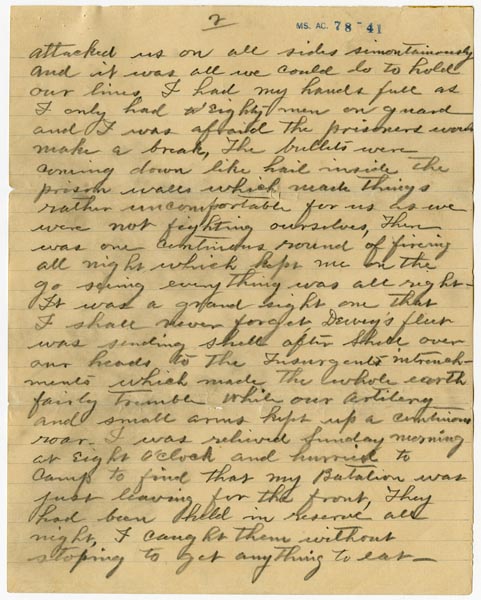 2
MS. AC. 78-41
attacked us on all sides simontainously
and it was all we could do to hold
our lines, I had my hands full as
I only had Eighty men on guard
and I was afraid the prisoners would
make a break, The bullets were
coming down like hail inside the
prison walls which made things
rather uncomfortable for us as we
were not fighting ourselves, There
was one continuous round of fireing
all night which kept me on the
go seing everything was all right-
It was a grand sight one that
I shall never forget, Dewey's fleet
was sending shell after shell over
our heads to the Insurgents intrench-
ments which made the whole earth
fairly tremble while our artilery
and small arms kept up a continous
roar- I was relieved Sunday morning
at Eight O'Clock and hurried to
Camp to find that my Batalion was
just leaving for the front, They
had been held in reserve all
night, I caught them without
stoping to get anything to eat-